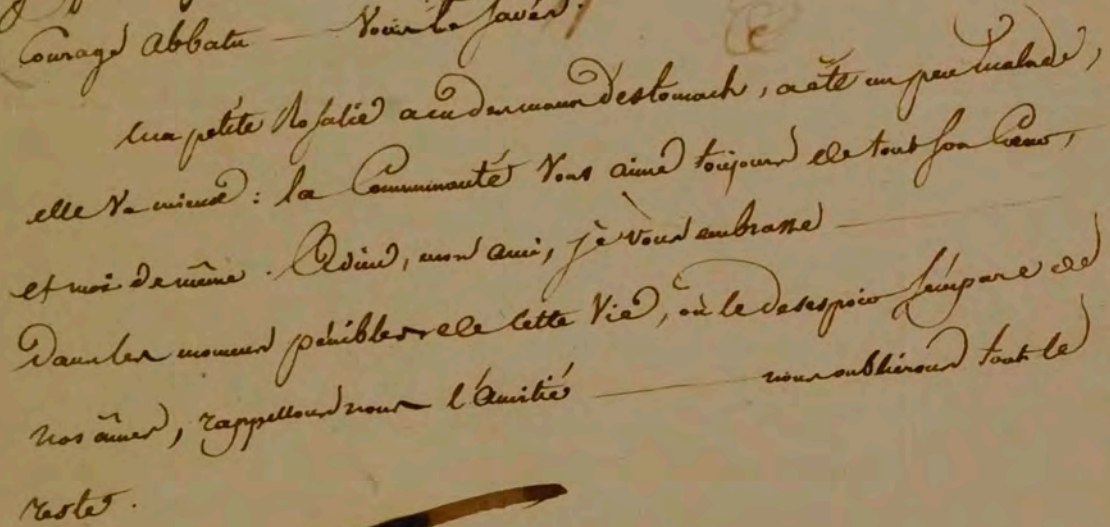 Courage abbatu — Vous le savés.
ma petite Rosalie a eu des maux d'estomach, a été un peu malade,
elle va mieux : la Communauté vous aime toujours de tout son Cœur,
et moi de même. Adieu, mon ami, je vous embrasse —
Dans les momens pénibles de cette Vie, où le desespoir s'empare de
nos âmes, rappellons nous l'Amitié — nous oublierons tout le
reste.